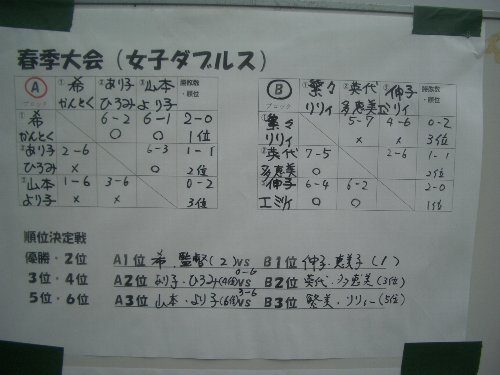 春季大会（女子ダブルス）
A ブロック ①希 かんとく ②あり子 ひろみ ③山本 より子 勝敗数・順位
①希 かんとく 6-2 ○ 6-1 ○ 2-0 1位
②あり子 ひろみ 2-6 × 6-3 ○ 1-1 2位
③山本 より子 1-6 × 3-6 × 0-2 3位
B ブロック ①繁々 リリィ ②英代 多恵美 ③伸子 勝敗数・順位
①繁々 リリィ 5-7 × 4-6 × 0-2 3位
②英代 多恵美 7-5 ○ 2-6 1-1 2位
③伸子 6-4 ○ 6-2 ○ 2-0 1位
順位決定戦
優勝・2位 A1位 希・監督(2) vs B1位 伸子・恵美子(1)
3位・4位 A2位 より子・ひろみ(4位) 0-6 vs B2位 英代・多恵美(3位)
5位・6位 A3位 山本・より子(6位) 3-6 vs B3位 繁美・リリィー(5位)